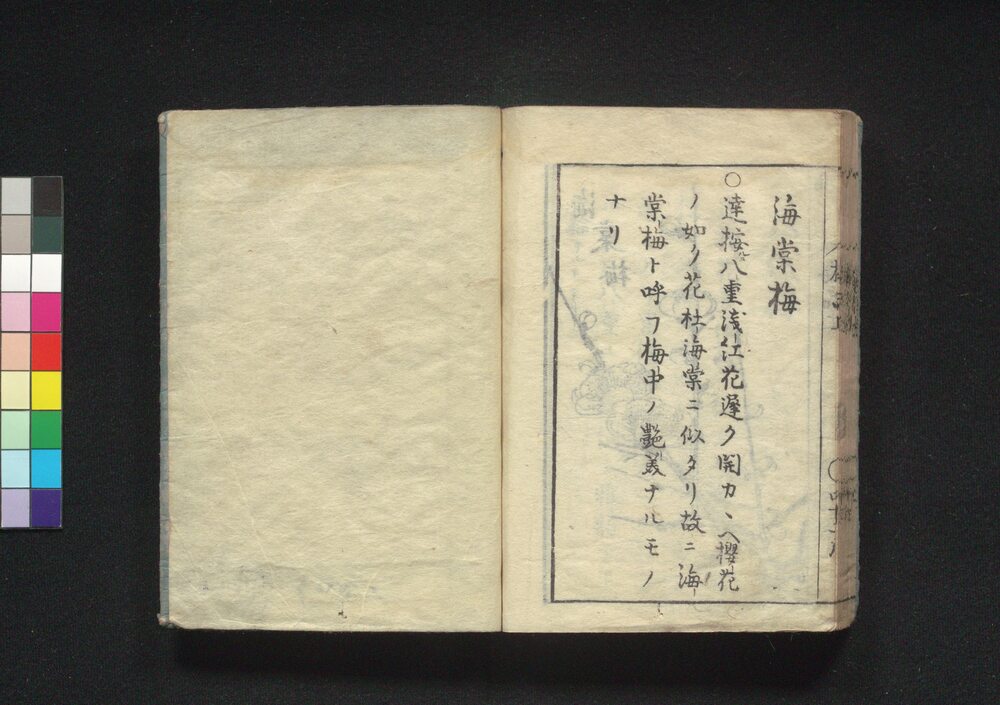 海棠梅
○達按八重浅紅花遅ク開カヽヘ櫻花
ノ如ク花柱海棠ニ似タリ故ニ海
棠梅ト呼フ梅中ノ艶美ナルモノ
ナリ